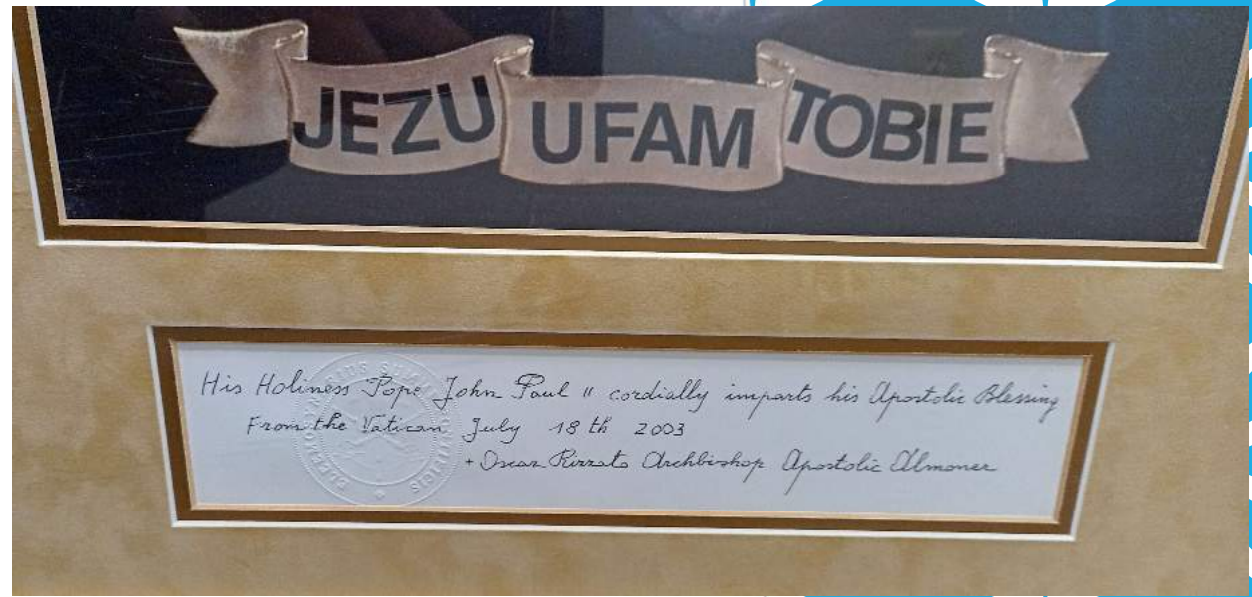 JEZU UFAM TOBIE
His Holiness Pope John Paul II cordially imparts his Apostolic Blessing
From the Vatican July 18th 2003
+ Oscar Rizzato Archbishop Apostolic Almoner